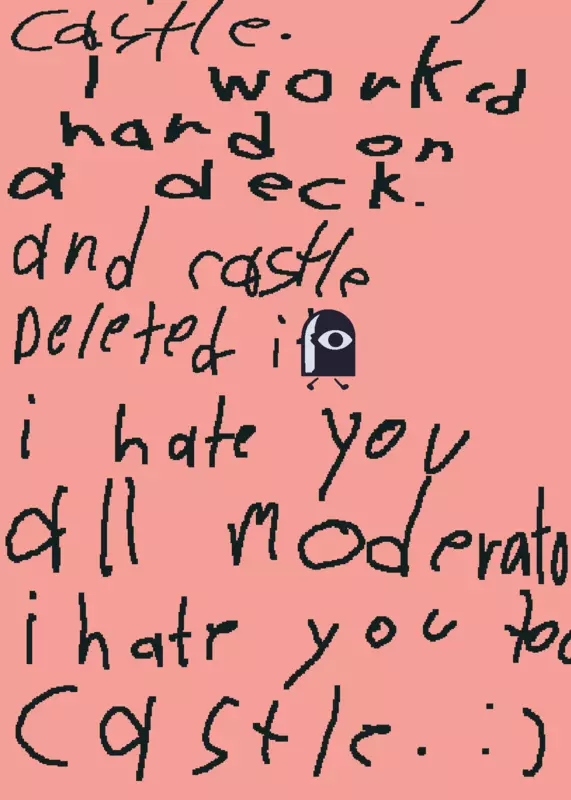 castle.
I worked
hard on
a deck.
and castle
Deleted it
i hate you
all moderato
i hate you too
Castle. :)